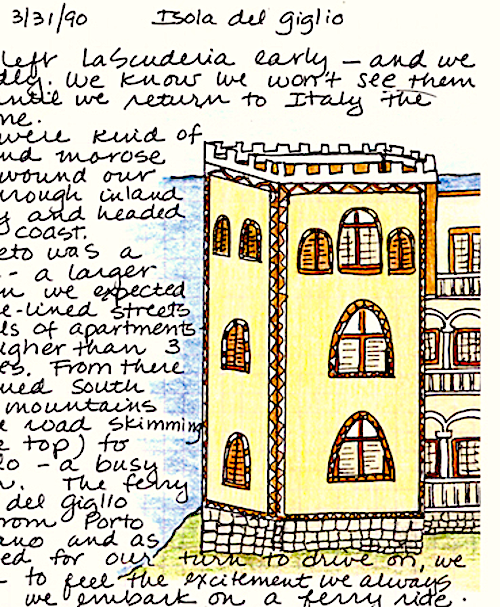 3/31/90 Isola del giglio
left LaScuderia early – and we
dly. We know we won't see them
until we return to Italy the
me.
were kind of
nd morose
wound our
rough inland
y and headed
coast.
eto was a
– a larger
n we expected
e-lined streets
ls of apartments
igher than 3
es. From there
ued South
mountains
e road skimming
e top) to
lo – a busy
n. The ferry
del Giglio
rom Porto
ano and as
ed for our turn to drive on, we
– to feel the excitement we always
we embark on a ferry ride.